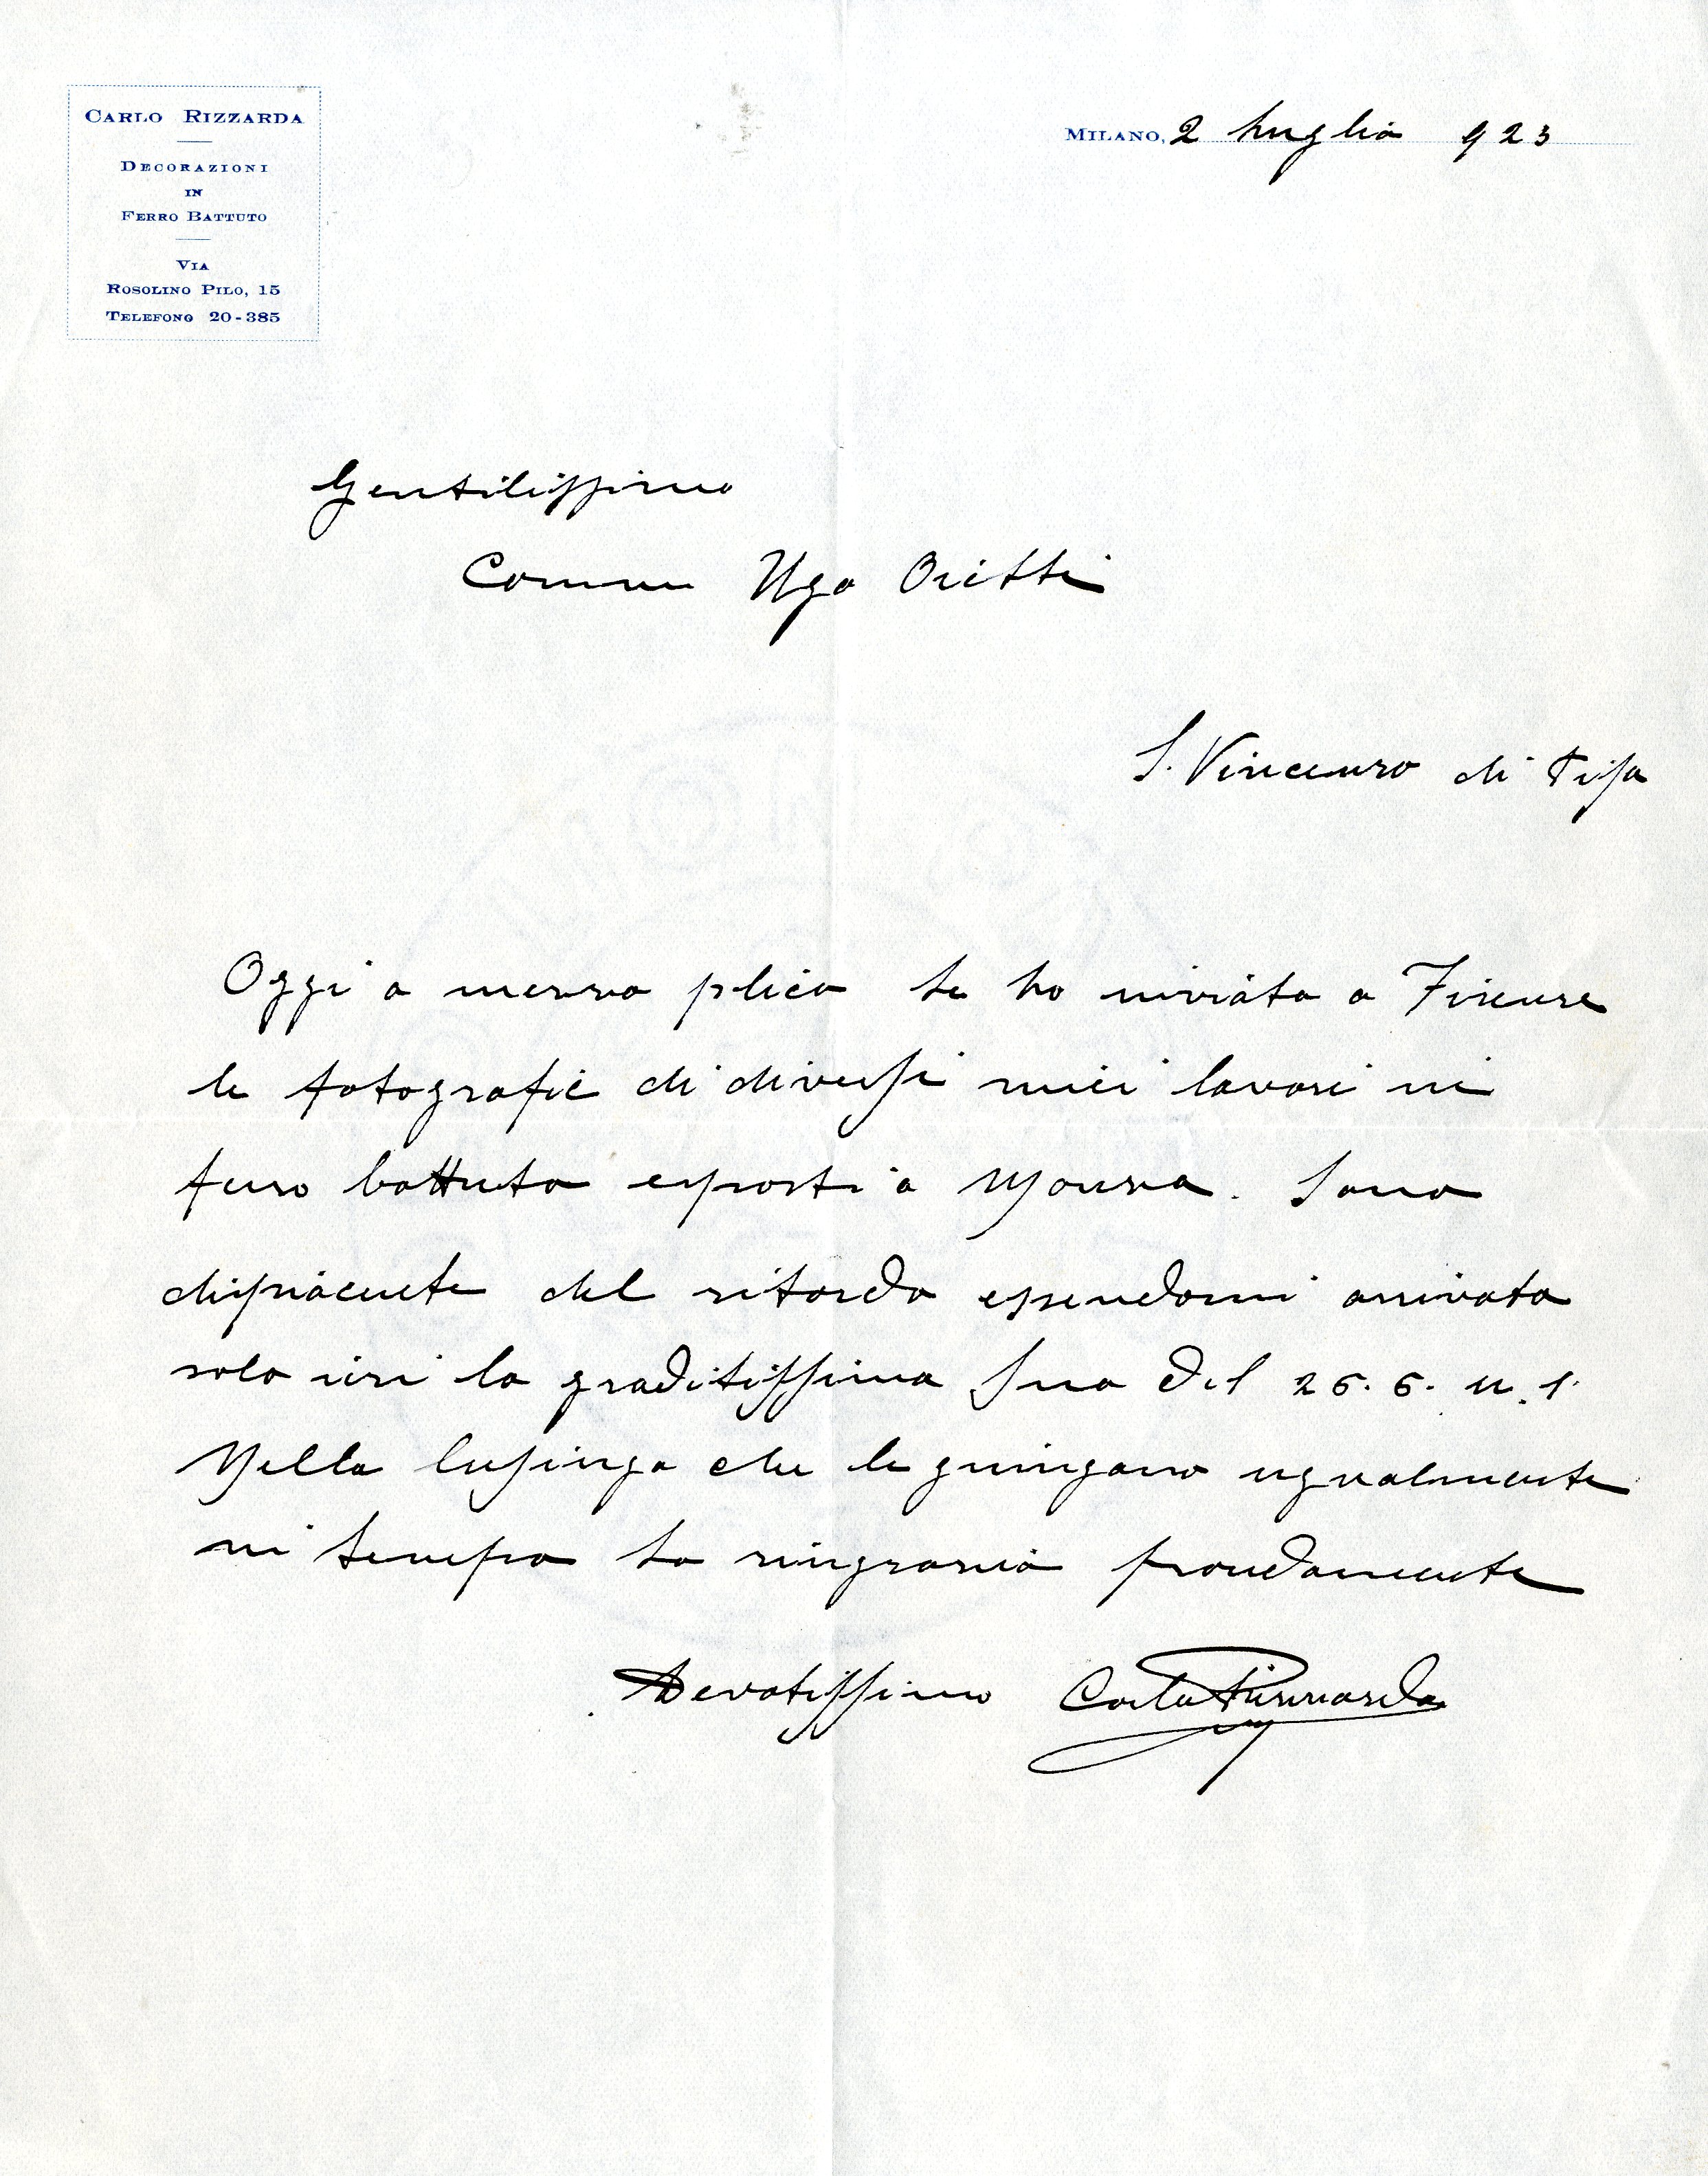 CARLO RIZZARDA
DECORAZIONI
IN
FERRO BATTUTO
VIA
ROSOLINO PILO, 15
TELEFONO 20-385
MILANO, 2 luglio 923
Gentilissimo
Comm Ugo Oietti
S. Vincenzo di Pisa
Oggi a mezzo plico Le ho inviato a Firenze
le fotografie di diversi miei lavori in
ferro battuto esposti a Monza. Sono
dispiacente del ritardo essendomi arrivata
solo ieri la graditissima Sua del 26. 6. u. s.
Nella lusinga che le giungano ugualmente
in tempo La ringrazio profondamente
Devotissimo Carlo Rizzarda